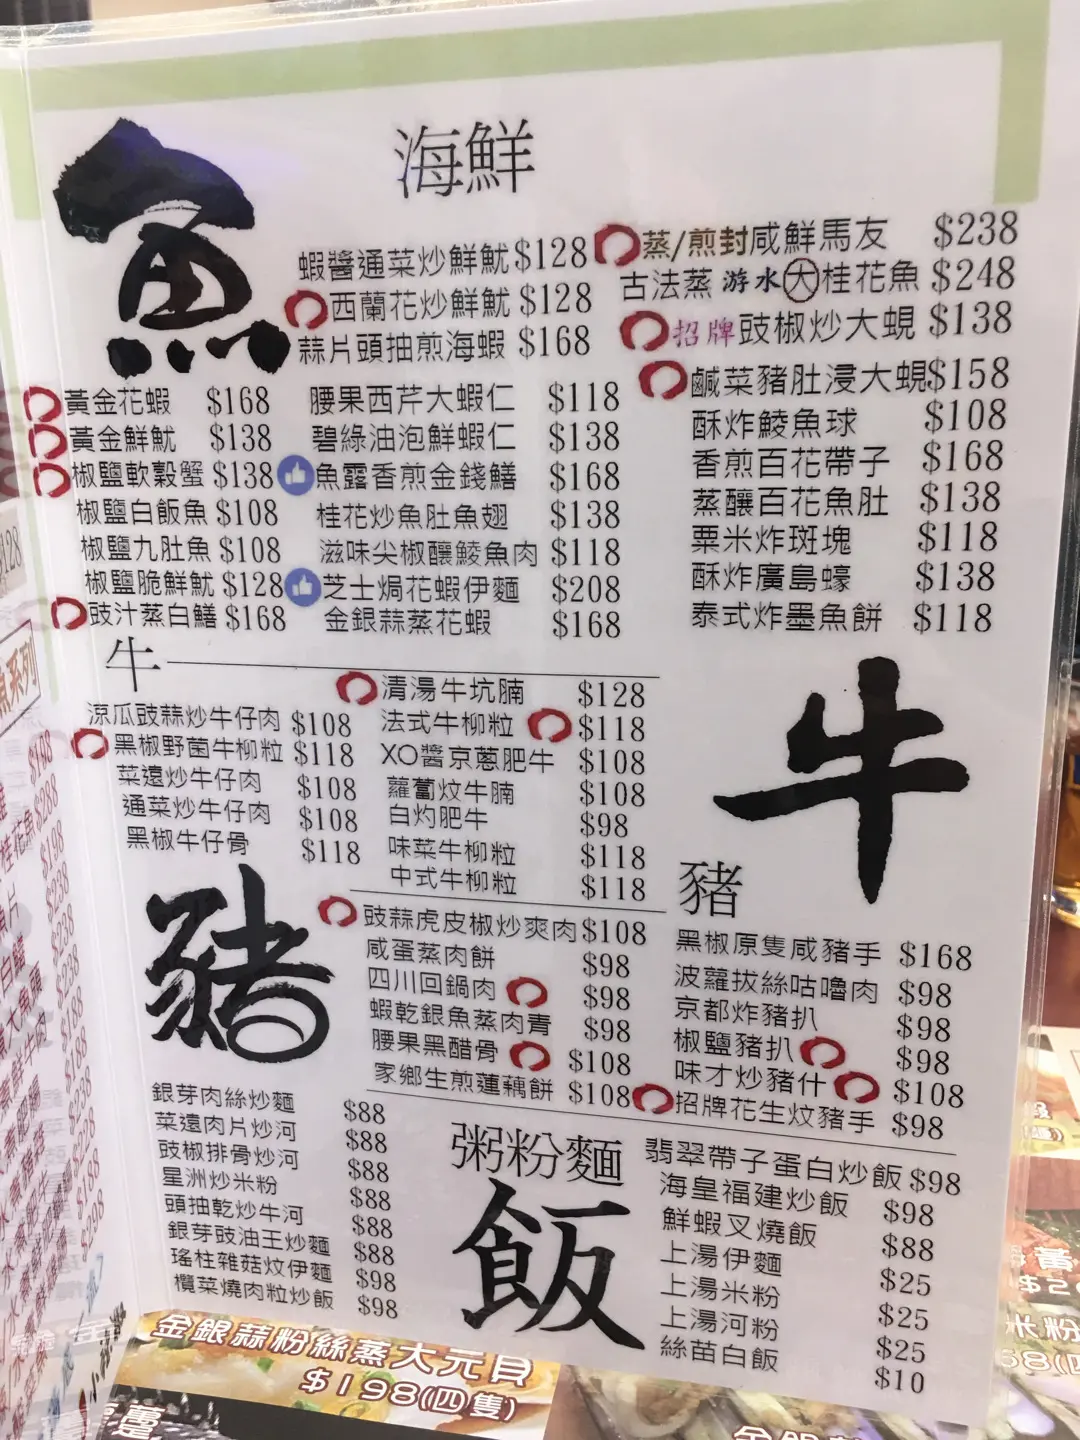 魚
海鮮
蝦醬通菜炒鮮魷 $128
西蘭花炒鮮魷 $128
蒜片頭抽煎海蝦 $168
蒸/煎封咸鮮馬友 $238
古法蒸游水大桂花魚 $248
招牌豉椒炒大蜆 $138
鹹菜豬肚浸大蜆 $158
酥炸鯪魚球 $108
香煎百花帶子 $168
蒸釀百花魚肚 $138
粟米炸斑塊 $118
酥炸廣島蠔 $138
泰式炸墨魚餅 $118
黃金花蝦 $168
黃金鮮魷 $138
椒鹽軟殼蟹 $138
椒鹽白飯魚 $108
椒鹽九肚魚 $108
椒鹽脆鮮魷 $128
豉汁蒸白鱔 $168
腰果西芹大蝦仁 $118
碧綠油泡鮮蝦仁 $138
魚露香煎金錢鱔 $168
桂花炒魚肚魚翅 $138
滋味尖椒釀鯪魚肉 $118
芝士焗花蝦伊麵 $208
金銀蒜蒸花蝦 $168
牛
涼瓜豉蒜炒牛仔肉 $108
黑椒野菌牛柳粒 $118
菜遠炒牛仔肉 $108
通菜炒牛仔肉 $108
黑椒牛仔骨 $118
清湯牛坑腩 $128
法式牛柳粒 $118
XO醬京蔥肥牛 $108
蘿蔔炆牛腩 $108
白灼肥牛 $98
味菜牛柳粒 $118
中式牛柳粒 $118
牛
豬
豬
豉蒜虎皮椒炒爽肉 $108
咸蛋蒸肉餅 $98
四川回鍋肉 $98
蝦乾銀魚蒸肉青 $98
腰果黑醋骨 $108
家鄉生煎蓮藕餅 $108
黑椒原隻咸豬手 $168
波蘿拔絲咕嚕肉 $98
京都炸豬扒 $98
椒鹽豬扒 $98
味才炒豬什 $108
招牌花生炆豬手 $98
銀芽肉絲炒麵 $88
菜遠肉片炒河 $88
豉椒排骨炒河 $88
星洲炒米粉 $88
頭抽乾炒牛河 $88
銀芽豉油王炒麵 $88
瑤柱雜菇炆伊麵 $98
欖菜燒肉粒炒飯 $98
粥粉麵
飯
翡翠帶子蛋白炒飯 $98
海皇福建炒飯 $98
鮮蝦叉燒飯 $88
上湯伊麵 $25
上湯米粉 $25
上湯河粉 $25
絲苗白飯 $10
金銀蒜粉絲蒸大元貝
$198(四隻)